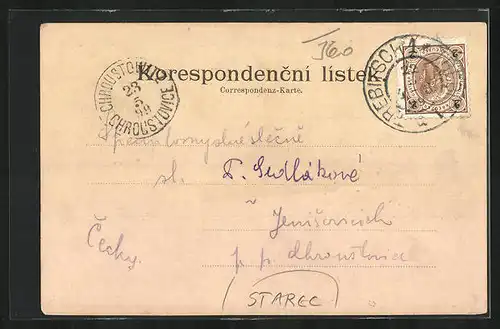 360
Korespondenční lístek
Correspondenz-Karte.
TREBITSCH
CHROUSTOVICE
23
5
99
CHROUSTOWITZ
slečně
sl. F. Sedlákové
v Jenišovicích
Čechy. p. p. Chroustovice
STAREC